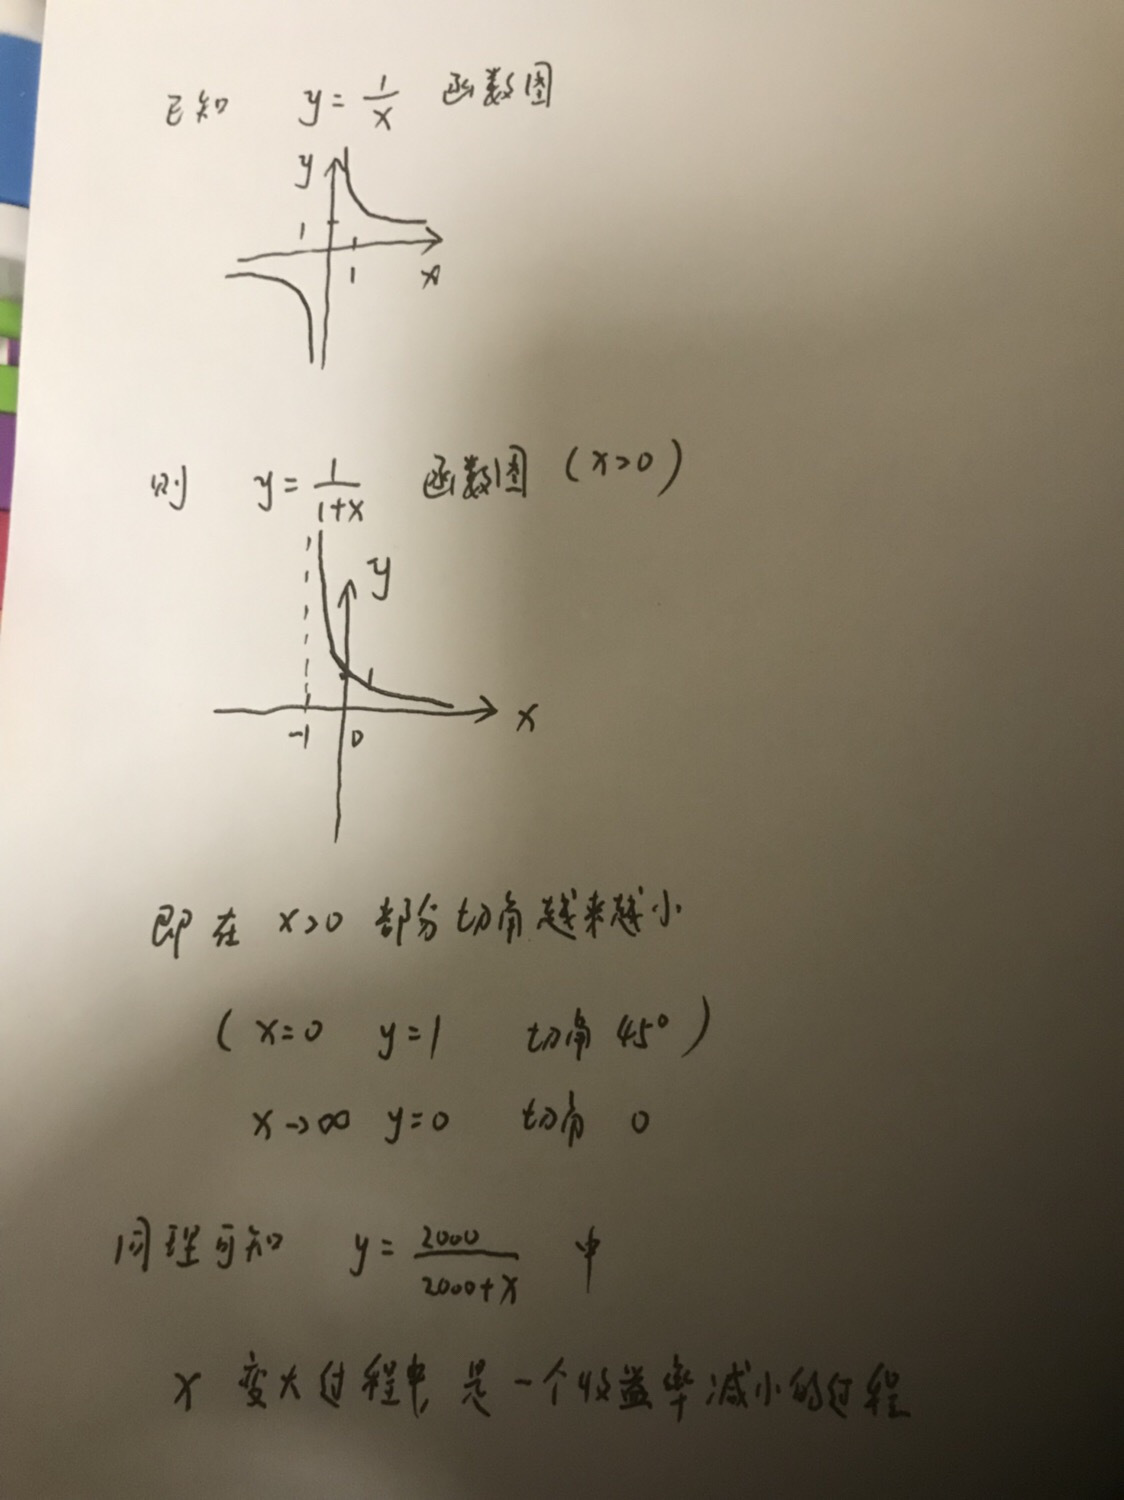 已知 y = 1/x 函数图
y
1
1
x
则 y = 1/(1+x) 函数图 (x>0)
y
1
x
-1 0
即在 x>0 部分切角越来越小
(x=0 y=1 切角 45°)
x→∞ y=0 切角 0
同理可知 y = 2000/(2000+x) 中
x 变大过程中, 是一个收益率减小的过程